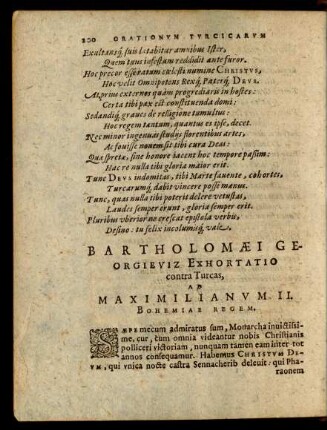 200 ORATIONVM TVRCICARVM
Exultansq́; suis lætabitur amnibus Ister,
Quem tuus infestum reddidit ante furor.
Hoc precor efferatum cœlesti numine CHRISTVS,
Hoc velit Omnipotens Rexq́; Paterq́; DEVS.
At prius externos quàm progrediaris in hostes:
Certa tibi pax est constituenda domi;
Sedandiq́; graues de religione tumultus:
Hoc regem tantum, quantus es ipse, decet.
Nec minor ingenuis studijs florentibus artes,
Ac fouisse nouem sit tibi cura Deas:
Quæ spretæ, sine honore iacent hoc tempore passim:
Hac re nulla tibi gloria maior erit.
Tunc DEVS indomitas, tibi Marte fauente, cohortes,
Turcarumq́; dabit vincere posse manus.
Tunc, quas nulla tibi poterit delere vetustas,
Laudes semper erunt, gloria semper erit.
Pluribus vberior ne crescat epistola verbis,
Desino: tu felix incolumisq́; vale.
BARTHOLOMÆI GE-
ORGIEVIZ EXHORTATIO
contra Turcas,
AD
MAXIMILIANVM II.
BOHEMIAE REGEM.
SÆPE mecum admiratus sum, Monarcha inuictissi-
me, cur, cum omnia videantur nobis Christianis
polliceri victoriam, nunquam tamen eam inter tot
annos consequamur. Habemus CHRISTVM DE-
VM, qui vnica nocte castra Sennacherib deleuit: qui Pha-
raonem